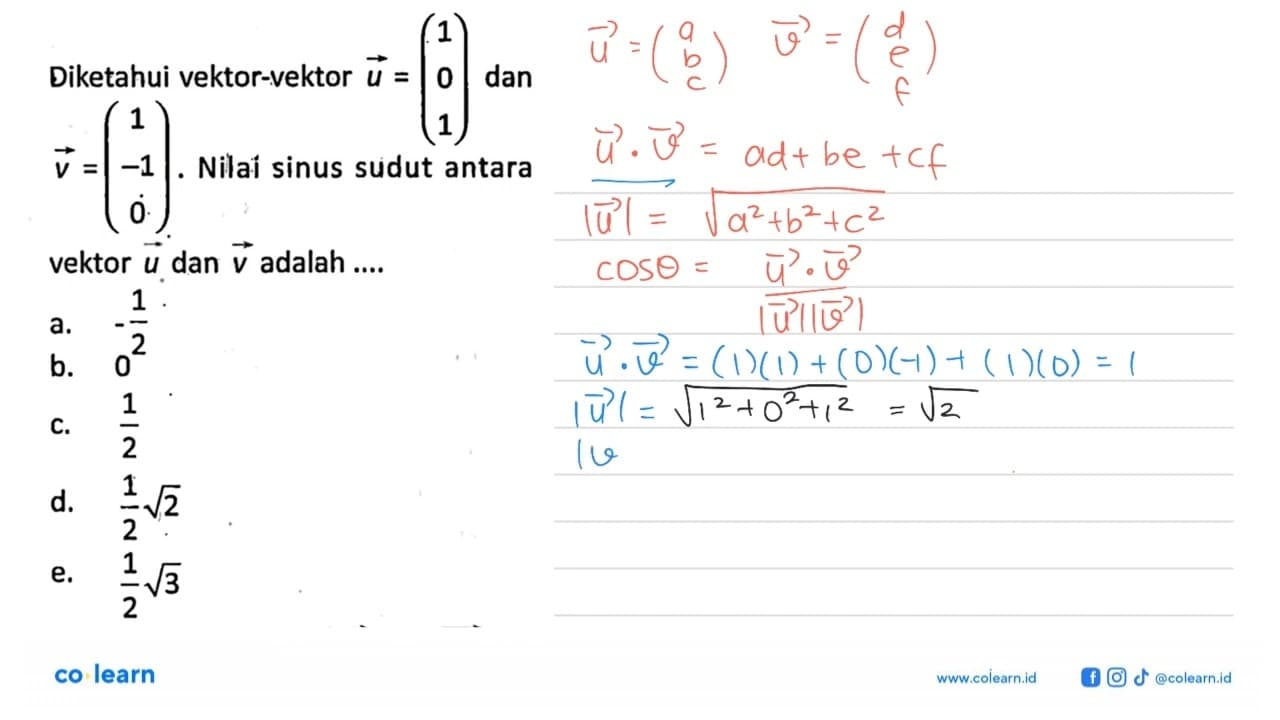 Diketahui vektor-vektor u⃗ = (1 0 1) dan
v⃗ = (1 −1 0). Nilai sinus sudut antara
vektor u⃗ dan v⃗ adalah ....
a. -1/2
b. 0
c. 1/2
d. 1/2 √2
e. 1/2 √3
u⃗ = (a b c) v⃗ = (d e f)
u⃗ . v⃗ = ad + be + cf
|u⃗| = √(a² + b² + c²)
cos θ = u⃗ . v⃗ / |u⃗||v⃗|
u⃗ . v⃗ = (1)(1) + (0)(-1) + (1)(0) = 1
|u⃗| = √(1² + 0² + 1²) = √2
|v
co learn
www.colearn.id @colearn.id